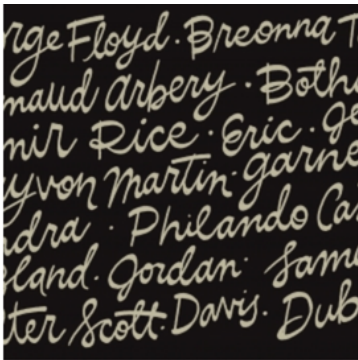 rge Floyd · Breonna T
maud Arbery · Both
mir Rice · Eric · Je
yvon Martin · garne
ndra · Philando Ca
eland · Jordan · Sam
lter Scott · Davis · Dub